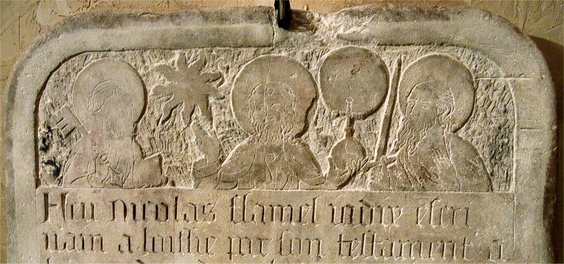 feu nicolas flamel iadiz escri
uain a laissie par son testament a